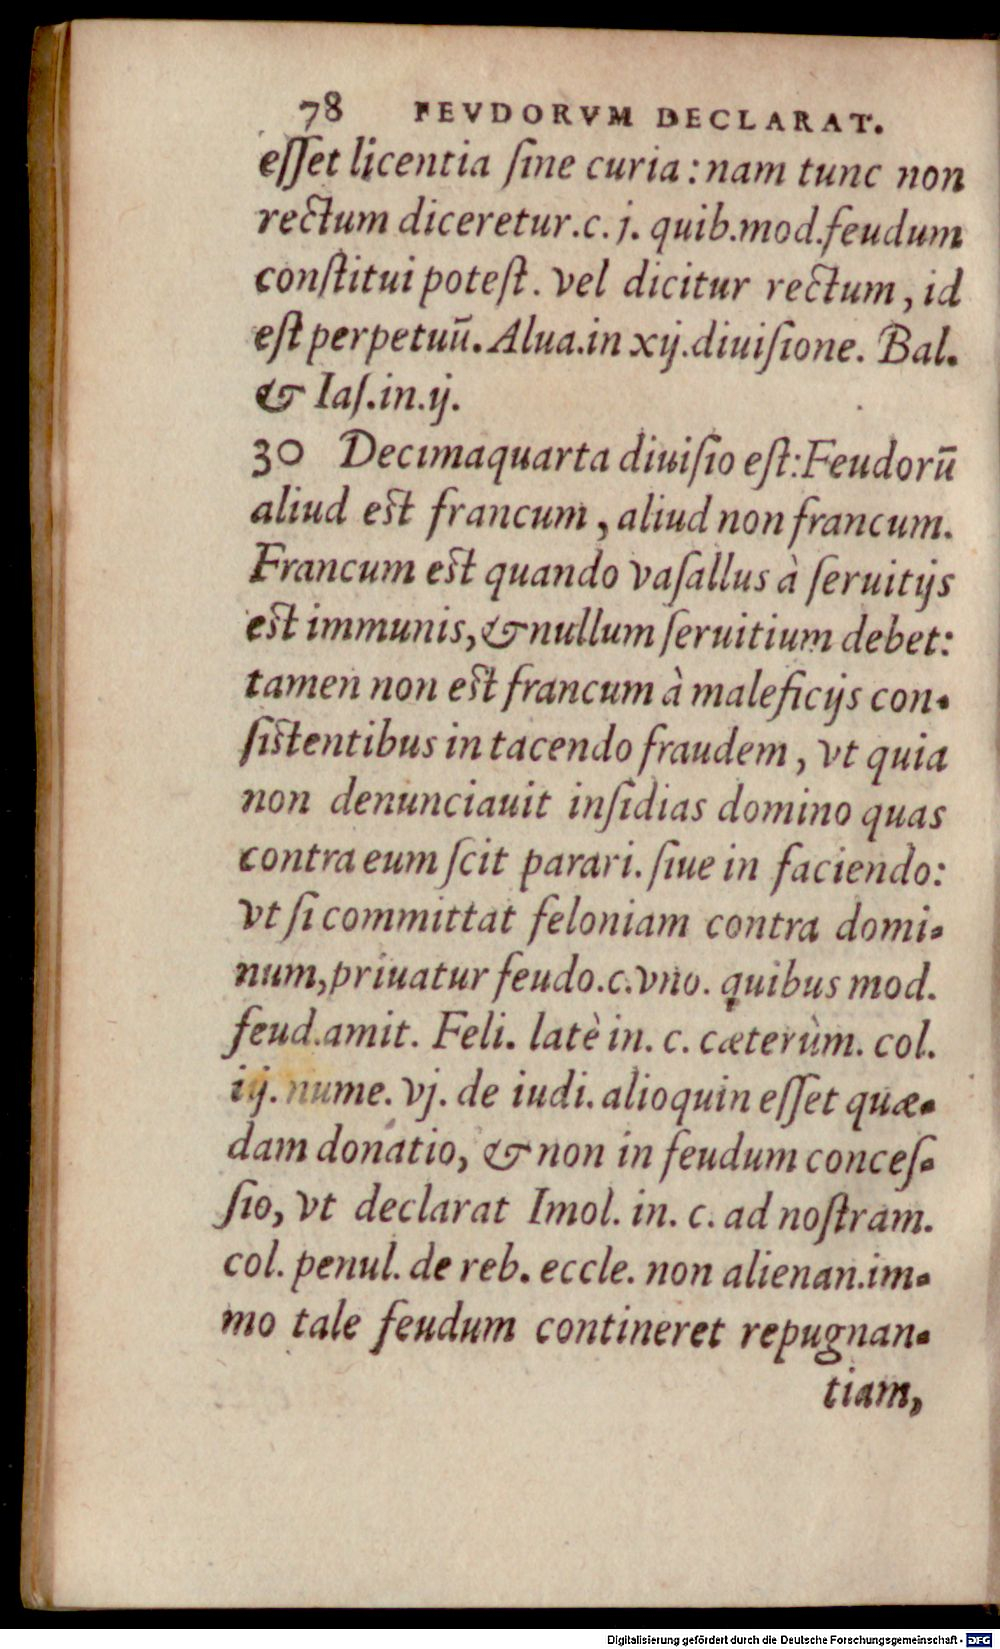 78 FEVDORVM DECLARAT.
eſſet licentia ſine curia: nam tunc non
rectum diceretur. c. j. quib. mod. feudum
conſtitui poteſt. vel dicitur rectum, id
eſt perpetuū. Alua. in xij. diuiſione. Bal.
& Iaſ. in. ij.
30 Decimaquarta diuiſio eſt: Feudorū
aliud eſt francum, aliud non francum.
Francum eſt quando vaſallus à ſeruitijs
eſt immunis, & nullum ſeruitium debet:
tamen non eſt francum à maleficijs con-
ſiſtentibus in tacendo fraudem, vt quia
non denunciauit inſidias domino quas
contra eum ſcit parari. ſiue in faciendo:
vt ſi committat feloniam contra domi-
num, priuatur feudo. c. vno. quibus mod.
feud. amit. Feli. latè in. c. cæterùm. col.
iij. nume. vj. de iudi. alioquin eſſet quæ-
dam donatio, & non in feudum conceſ-
ſio, vt declarat Imol. in. c. ad noſtram.
col. penul. de reb. eccle. non alienan. im-
mo tale feudum contineret repugnan-
tiam,
Digitalisierung gefördert durch die Deutsche Forschungsgemeinschaft - DFG